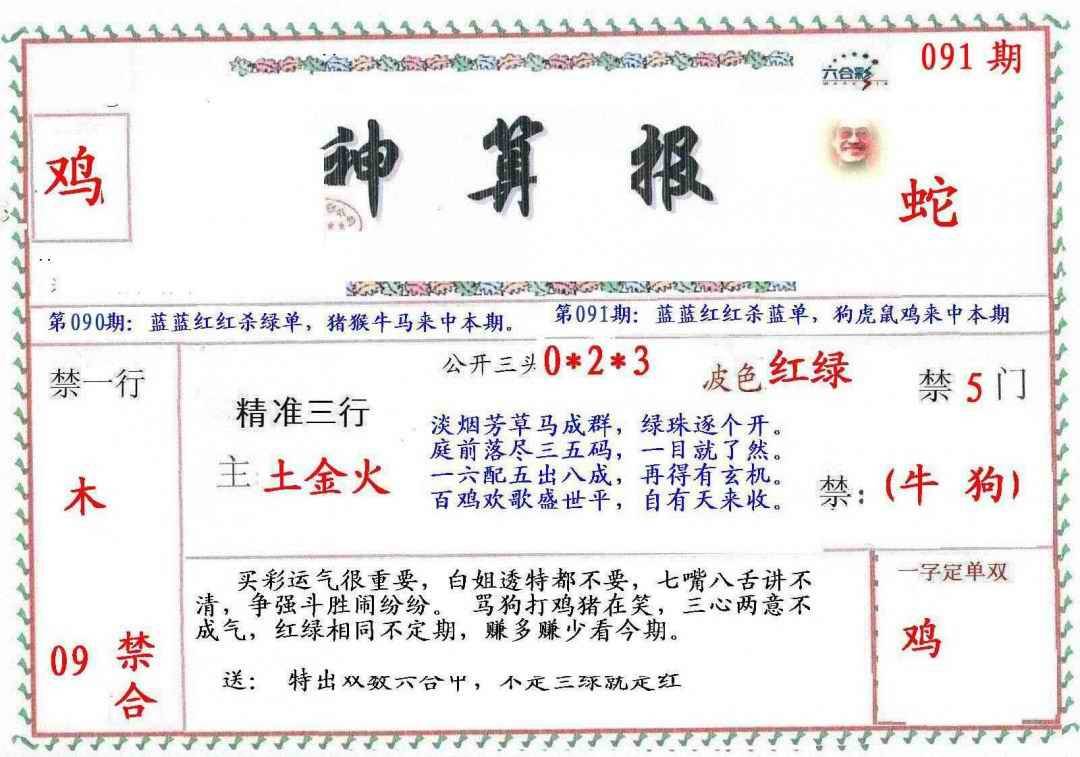 091 期
六合彩
鸡
神算报
蛇
第090期：蓝蓝红红杀绿单，猪猴牛马来中本期。
第091期：蓝蓝红红杀蓝单，狗虎鼠鸡来中本期
禁一行
木
09 禁合
公开三头 0*2*3
波色 红绿
禁 5 门
精准三行
主 土金火
淡烟芳草马成群，绿珠逐个开。
庭前落尽三五码，一目就了然。
一六配五出八成，再得有玄机。
百鸡欢歌盛世平，自有天来收。
禁：（牛 狗）
买彩运气很重要，白姐透特都不要，七嘴八舌讲不
清，争强斗胜闹纷纷。 骂狗打鸡猪在笑，三心两意不
成气，红绿相同不定期，赚多赚少看今期。
送： 特出双数六合中，不是三绿就是红
一字定单双
鸡